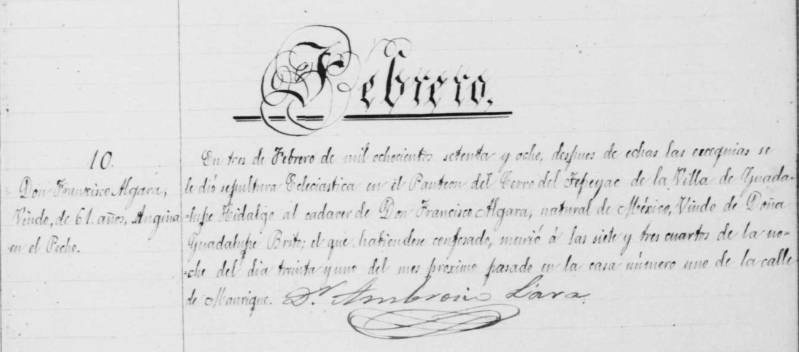 Febrero.
10.
Don Francisco Algara,
Viudo, de 61. años, Angina
en el Pecho.
En tres de Febrero de mil ochocientos setenta y ocho, despues de echas las exequias se
le dió sepultura Eclesiastica en el Panteon del Cerro del Tepeyac de la Villa de Guada-
-lupe Hidalgo al cadaver de Don Francisco Algara, natural de México, Viudo de Doña
Guadalupe Brito; el que habiendose confesado, murió á las siete y tres cuartos de la no-
-che del dia treinta y uno del mes próximo pasado en la casa número uno de la calle
de Manrique. Dr. Ambrosio Lara.